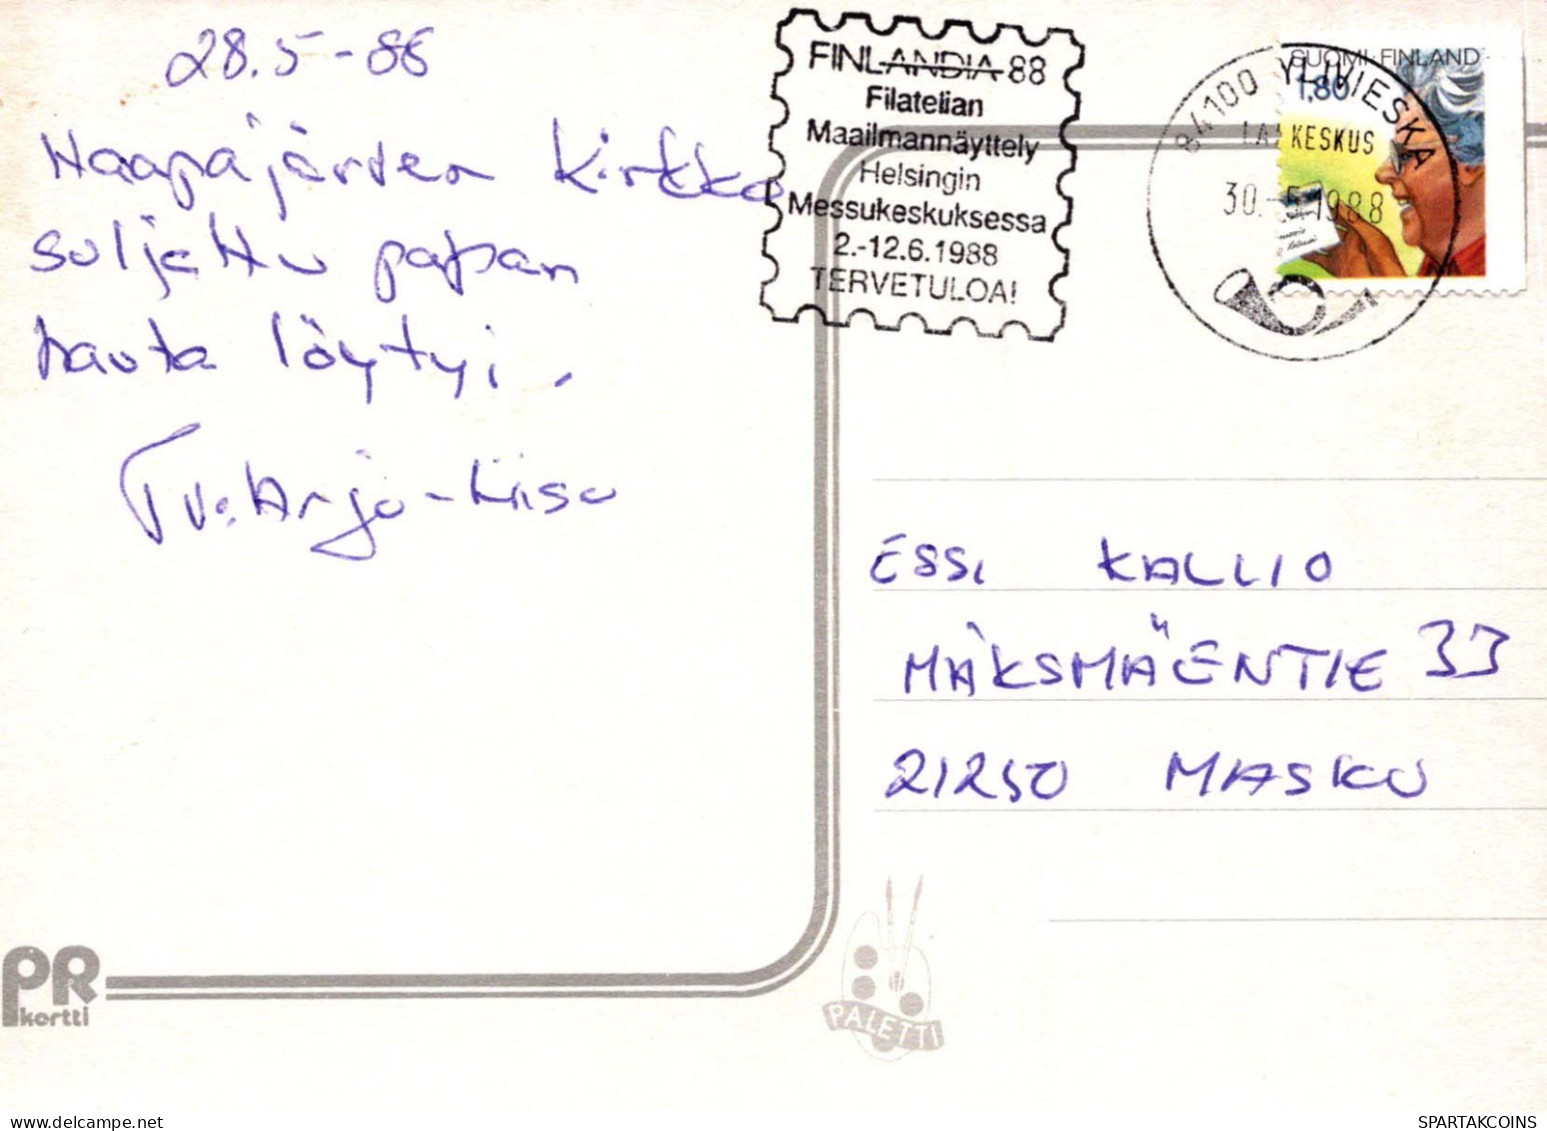 28.5-88
Haapajärven kirkko
suljettu papan
hauta löytyi.
Tv: Arja-Liisa
FINLANDIA 88
Filatelian
Maailmannäyttely
Helsingin
Messukeskuksessa
2.-12.6.1988
TERVETULOA!
84100 YLIVIESKA
KESKUS
30.-5.1988
SUOMI·FINLAND
1,80
ESSI KALLIO
MÄKSMÄENTIE 33
21250 MASKU
PR
kortti
PALETTI
delcampe.net
SPARTAKCOINS